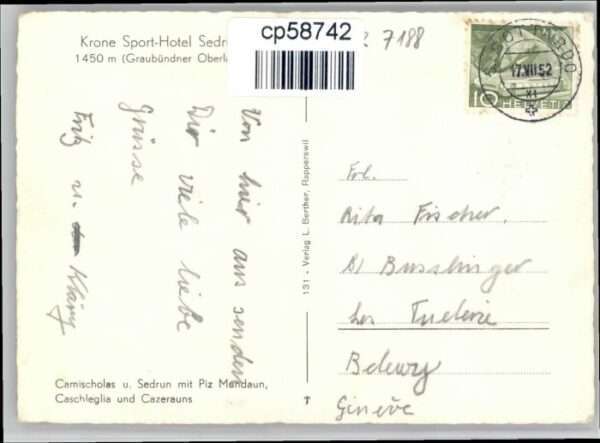 Krone Sport-Hotel Sedr
1450 m (Graubündner Oberl
cp58742
7188
10 HELVETIA
17.VII.52
XI
Von hier aus senden
Dir viele liebe
Grüsse
Fritz u. Kläry
131 - Verlag L. Berther, Rapperswil
Frl.
Rita Fischer.
b/ Busslinger
Les Tuilerie
Belevy
Genève
Camischolas u. Sedrun mit Piz Mundaun,
Caschleglia und Cazerauns
T